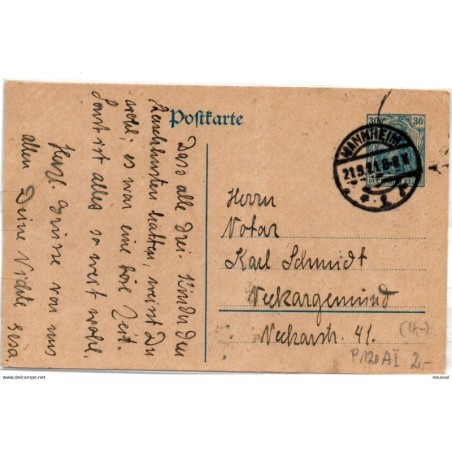 Postkarte
30 30
MANNHEIM
21.9.21.
Dass alle drei Kinder den
Keuchhusten hatten, weisst Du
wohl; es war eine böse Zeit.
Sonst ist alles so weit wohl.
Herzl. Grüsse von uns
allen Deine Nichte
Herrn
Notar
Karl Schmidt
Neckargemünd
Neckarstr. 41.
P120AI 2.-